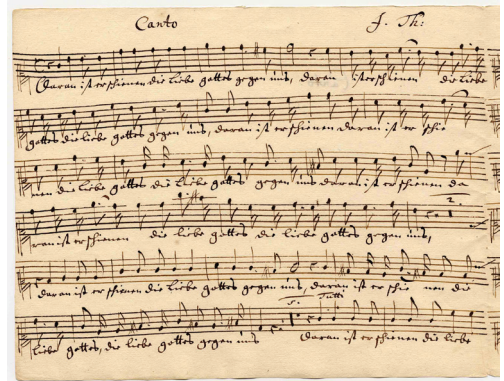 Canto J. Th:
Daran ist erschienen die Liebe gottes gegen uns, daran ist erschienen die Liebe
gottes die liebe gottes gegen uns, daran ist erschienen daran ist er schie
nen die Liebe gottes die Liebe gottes gegen uns daran ist erschienen da
2.
ran ist erschienen die liebe gottes die liebe gottes gegen uns,
daran ist erschienen die Liebe gottes gegen uns, daran ist er schie nen die
Tutti
liebe gottes, die liebe gottes gegen uns daran ist erschienen die liebe